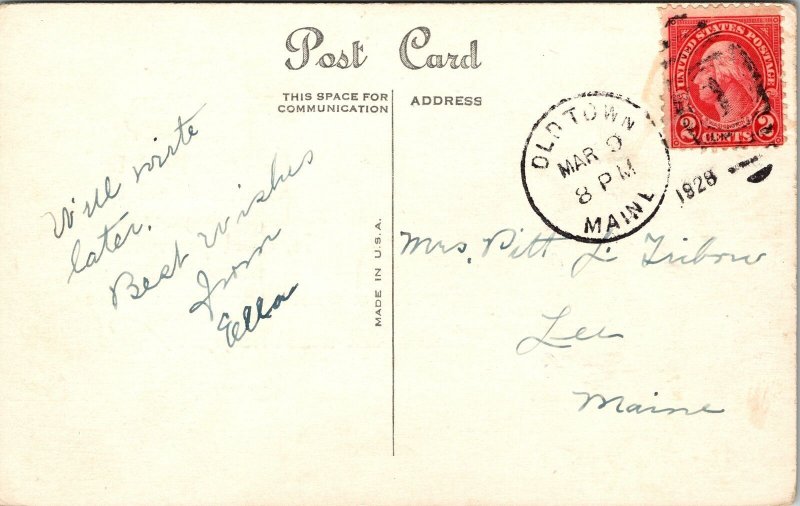 Post Card
THIS SPACE FOR
COMMUNICATION
ADDRESS
UNITED STATES POSTAGE
2 CENTS 2
OLD TOWN
MAR 9
8 PM
1928
MAINE
Will write
later.
Best Wishes
from
Ella
MADE IN U.S.A.
Mrs. Pitt L. Tribow
Lee
Maine